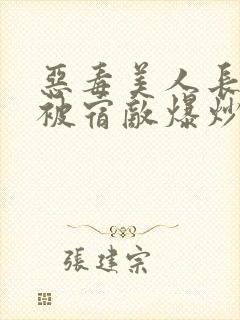 惡毒美人長
被宿敵爆炒
張建宗